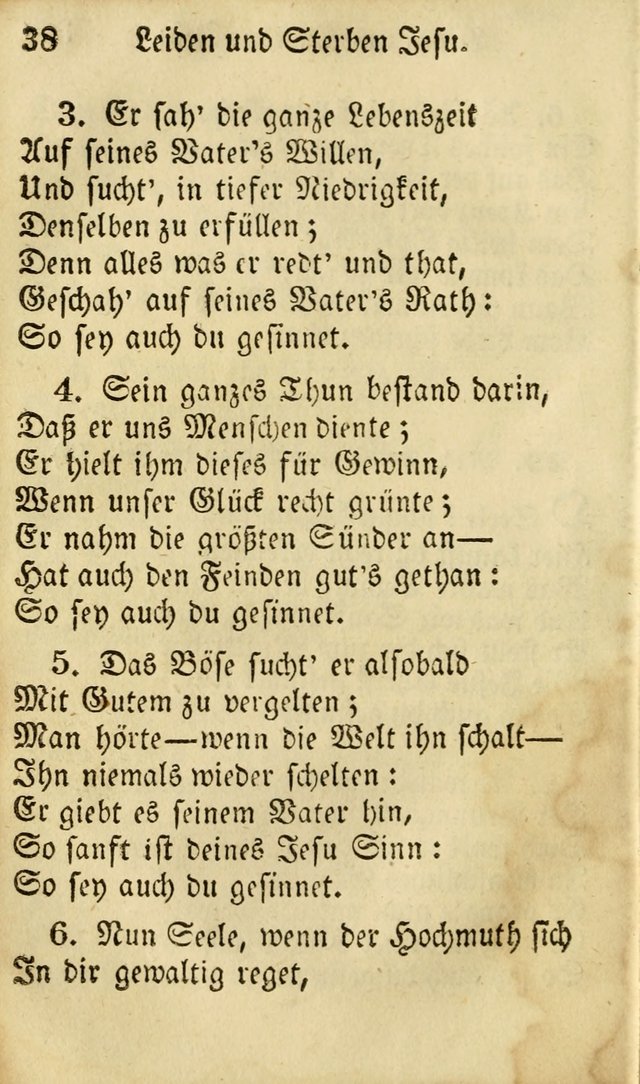 38 Leiden und Sterben Jesu.
3. Er sah' die ganze Lebenszeit
Auf seines Vater's Willen,
Und sucht', in tiefer Niedrigkeit,
Denselben zu erfüllen;
Denn alles was er redt' und that,
Geschah' auf seines Vater's Rath:
So sey auch du gesinnet.
4. Sein ganzes Thun bestand darin,
Daß er uns Menschen diente;
Er hielt ihm dieses für Gewinn,
Wenn unser Glück recht grünte;
Er nahm die größten Sünder an—
Hat auch den Feinden gut's gethan:
So sey auch du gesinnet.
5. Das Böse sucht' er alsobald
Mit Gutem zu vergelten;
Man hörte—wenn die Welt ihn schalt—
Ihn niemals wieder schelten:
Er giebt es seinem Vater hin,
So sanft ist deines Jesu Sinn:
So sey auch du gesinnet.
6. Nun Seele, wenn der Hochmuth sich
In dir gewaltig reget,